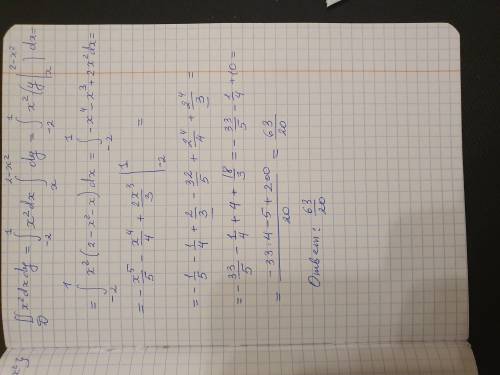 ∬_D x²dxdy = ∫_{-2}^{1} x²dx ∫_{x}^{2-x²} dy = ∫_{-2}^{1} x² (y |_{x}^{2-x²}) dx =
= ∫_{-2}^{1} x² (2-x²-x) dx = ∫_{-2}^{1} -x⁴-x³+2x²dx =
= -x⁵/5 - x⁴/4 + 2x³/3 |_{-2}^{1} =
= -1/5 - 1/4 + 2/3 - 32/5 + 2⁴/4 + 2⁴/3 =
= -33/5 - 1/4 + 4 + 18/3 = -33/5 - 1/4 + 10 =
= (-33·4-5+200)/20 = 63/20
Ответ: 63/20